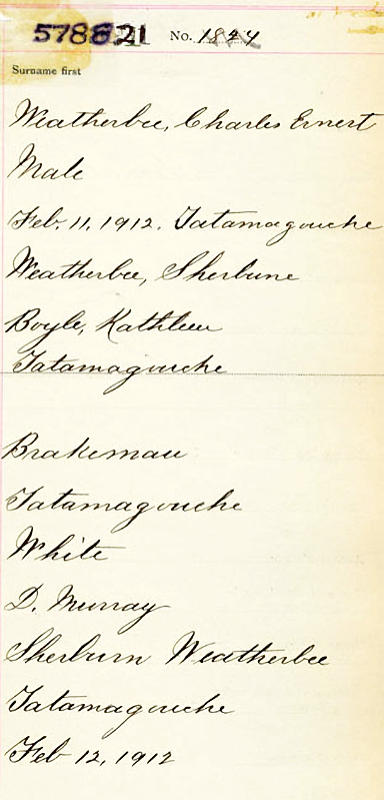 578621 No. 1824
Surname first
Weatherbee, Charles Ernest
Male
Feb. 11, 1912. Tatamagouche
Weatherbee, Sherbune
Boyle, Kathleen
Tatamagouche
Brakeman
Tatamagouche
White
D. Murray
Sherburn Weatherbee
Tatamagouche
Feb 12, 1912